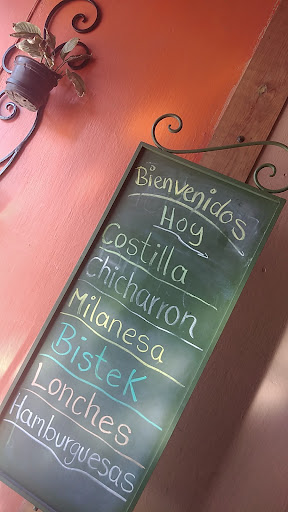 Bienvenidos
Hoy
Costilla
Chicharron
Milanesa
Bistek
Lonches
Hamburguesas